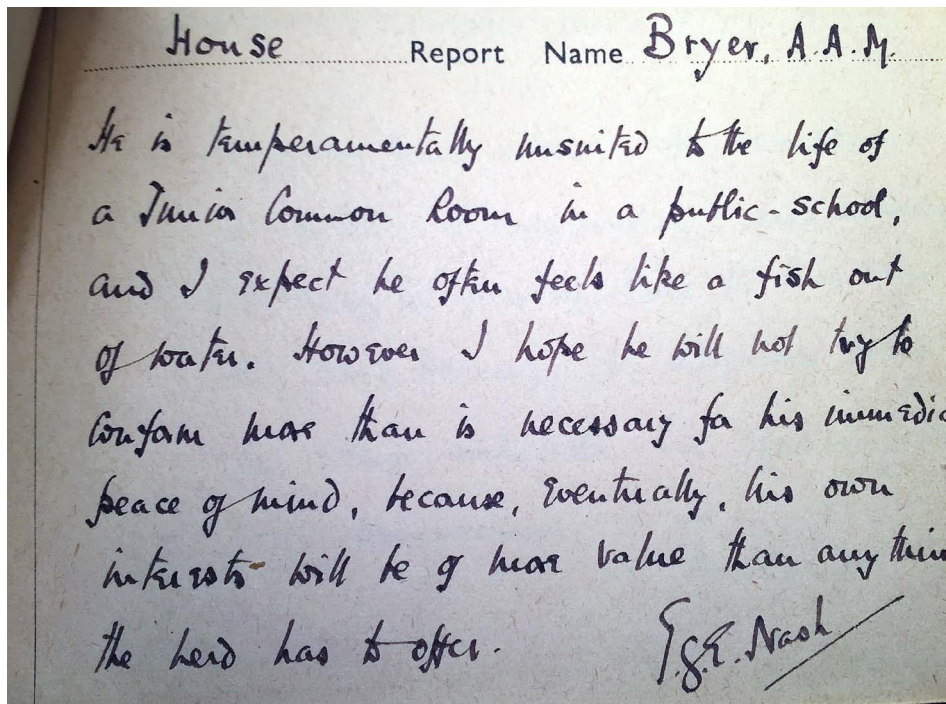 House Report Name Bryer, A.A.M.
He is temperamentally unsuited to the life of
a Junior Common Room in a public-school,
and I expect he often feels like a fish out
of water. However I hope he will not try to
conform more than is necessary for his immedia
peace of mind, because, eventually, his own
interests will be of more value than any thin
the herd has to offer.
T.G.E. Nash